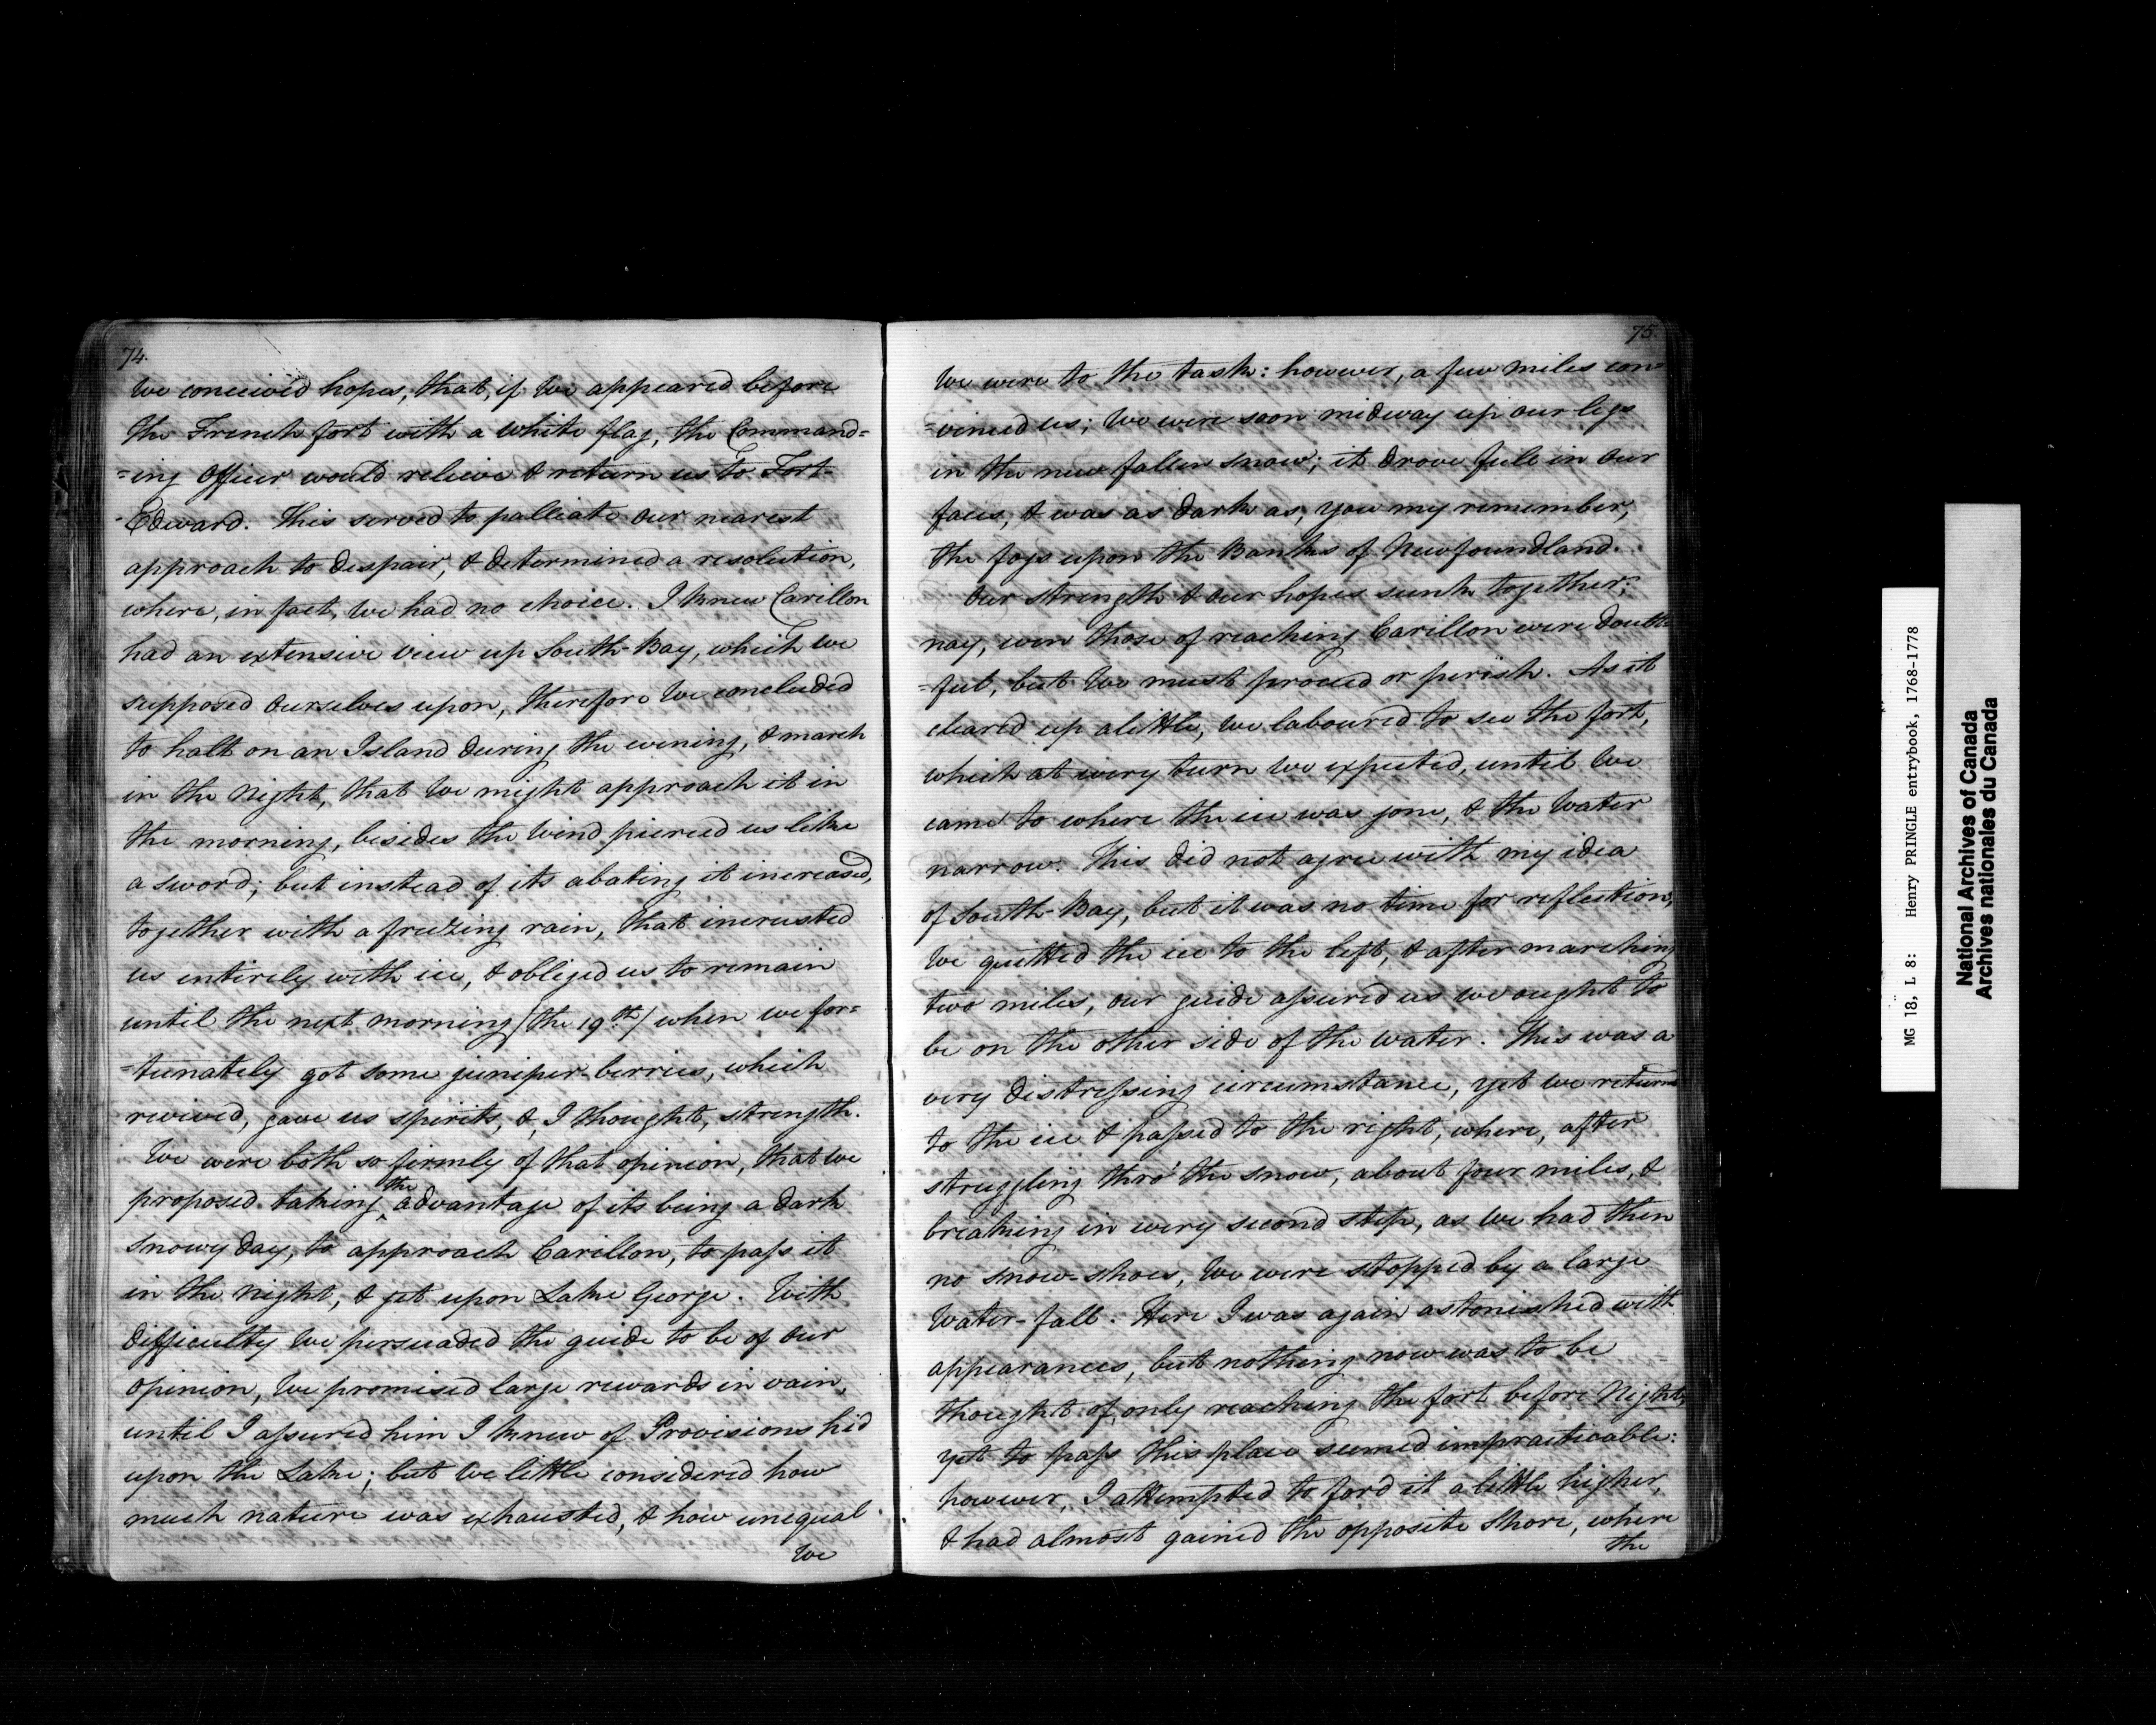 74.
We conceived hopes, that, if We appeared before
the French fort with a white flag, the Command=
=ing Officer would relieve & return us to Fort-
-Edward. This served to palliate our nearest
approach to despair, & determined a resolution,
where, in fact, we had no choice. I knew Carillon
had an extensive view up South-Bay, which we
supposed ourselves upon, therefore we concluded
to halt on an Island during the evening, & march
in the Night, that we might approach it in
the morning, besides the Wind pierced us like
a sword; but instead of its abating it increased,
together with a freezing rain, that incrusted
us entirely with ice, & obliged us to remain
until the next morning /the 19th/ when we for=
=tunately got some juniper-berries, which
revived, gave us spirits, &, I thought, strength.
We were both so firmly of that opinion, that we
proposed taking the advantage of its being a dark
snowy day, to approach Carillon, to pass it
in the Night, & get upon Lake George. With
difficulty we persuaded the guide to be of our
opinion, We promised large rewards in vain,
until I assured him I knew of Provisions hid
upon the Lake; but we little considered how
much nature was exhausted, & how unequal
We
75.
We were to the task: however, a few miles con=
=vinced us; We were soon midway up our legs
in the new fallen snow; it drove full in our
faces, & was as dark as, you my remember,
the fogs upon the Banks of Newfoundland.
Our strength & our hopes sunk together;
nay, even those of reaching Carillon were doubt=
=ful, but We must proceed or perish. As it
cleared up a little, we laboured to see the fort,
which at every turn we expected, until we
came to where the ice was gone, & the Water
narrow. This did not agree with my idea
of South-Bay, but it was no time for reflection;
We quitted the ice to the left, & after marching
two miles, our guide assured us we ought to
be on the other side of the water. This was a
very distressing circumstance, yet we return
to the ice & passed to the right, where, after
struggling thro' the snow, about four miles, &
breaking in every second step, as we had then
no snow-shoes, We were stopped by a large
Water-fall. Here I was again astonished with
appearances, but nothing now was to be
thought of, only reaching the fort before Night;
yet to pass this place seemed impracticable:
however, I attempted to ford it a little higher,
& had almost gained the opposite shore, where
the
MG 18, L 8: Henry PRINGLE entrybook, 1768-1778
National Archives of Canada
Archives nationales du Canada